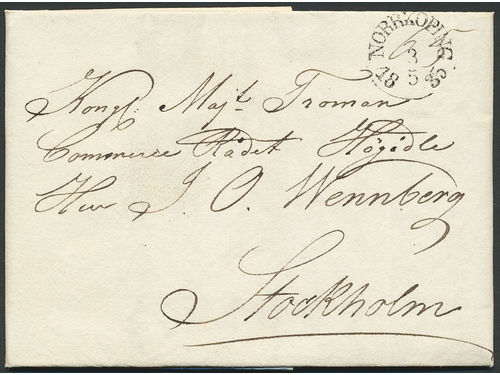 NORRKÖPING
3
5
18 35
Kongl Maj:t Troman
Commerce Rådet Högädle
Herr J. O. Wennberg
Stockholm